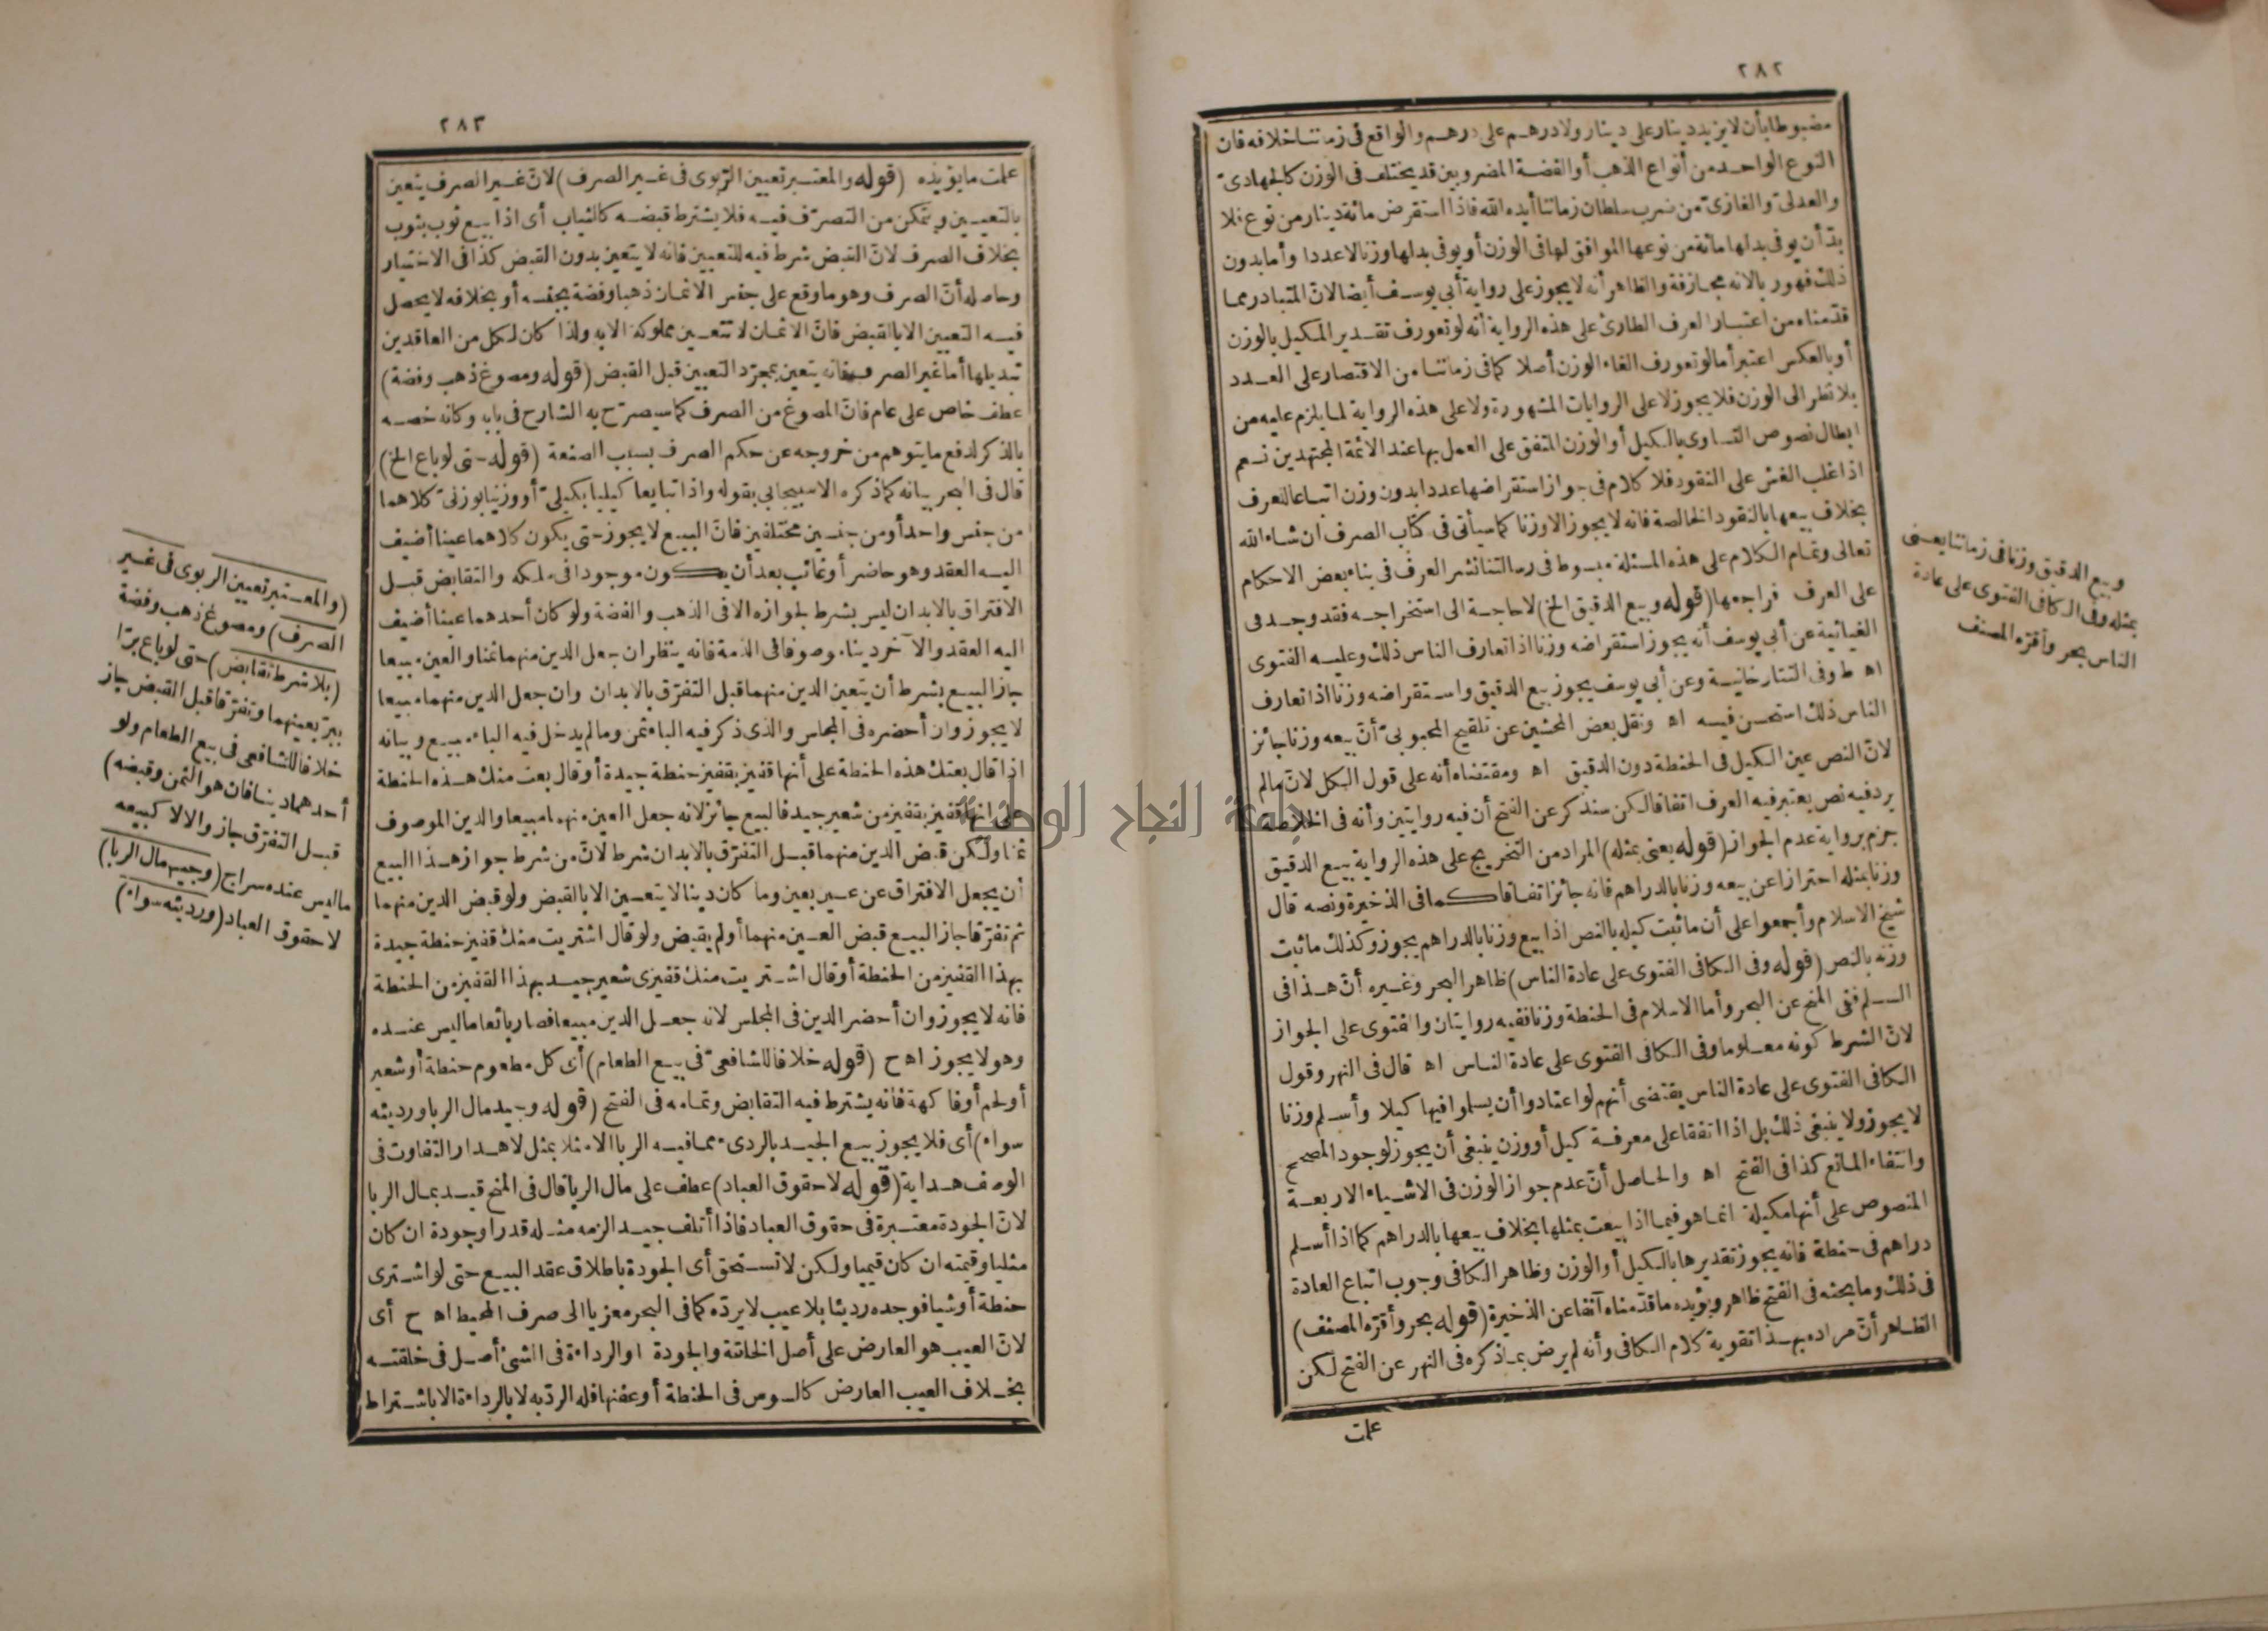 ٢٨٢
مضبوطا بأن لا يزيد دينار على دينار ولا درهم على درهم والواقع فى زماننا خلافه فان
النوع الواحد من أنواع الذهب أو الفضة المضروبين قد يختلف فى الوزن كالجهادىّ
والعدلىّ والغازىّ من ضرب سلطان زماننا أيده الله فاذا استقرض مائة دينار من نوع فلا
بدّ أن يوفى بدلها مائة من نوعها الموافق لها فى الوزن أو يوفى بدلها وزنا لا عددا وأما بدون
ذلك فهو ربا لانه مجازفة والظاهر أنه لا يجوز على رواية أبى يوسف أيضا لانّ المتبادر مما
قدّمناه من اعتبار العرف الطارئ على هذه الرواية أنه لو تعورف تقدير المكيل بالوزن
أو بالعكس اعتبر أما لو تعورف الغاء الوزن أصلا كما فى زماننا من الاقتصار على العدد
بلا نظر الى الوزن فلا يجوز لا على الروايات المشهورة ولا على هذه الرواية لما يلزم عليه من
ابطال نصوص التساوى بالكيل أو الوزن المتفق على العمل بها عند الائمة المجتهدين نعم
اذا غلب الغش على النقود فلا كلام فى جواز استقراضها عددا بدون وزن اتباعا للعرف
بخلاف بيعها بالنقود الخالصة فانه لا يجوز الا وزنا كما سيأتى فى كتاب الصرف ان شاء الله
تعالى وتمام الكلام على هذه المسئلة مبسوط فى رسالتنا نشر العرف فى بناء بعض الاحكام
على العرف فراجعها (قوله وبيع الدقيق الخ) لا حاجة الى استخراجه فقد وجد فى
الغياثية عن أبى يوسف أنه يجوز استقراضه وزنا اذا تعارف الناس ذلك وعليه الفتوى
اه ط وفى التتارخانية وعن أبى يوسف يجوز بيع الدقيق واستقراضه وزنا اذا تعارف
الناس ذلك استحسن فيه اه ونقل بعض المحشين عن تلقيح المحبوبىّ أنّ بيعه وزنا جائز
لانّ النص عين الكيل فى الحنطة دون الدقيق اه ومقتضاه أنه على قول الكل لانّ مالم
يرد فيه نص يعتبر فيه العرف اتفاقا لكن سنذكر عن الفتح أن فيه روايتين وأنه فى الخلاصة
جزم برواية عدم الجواز (قوله يعنى بمثله) المراد من التخريج على هذه الرواية بيع الدقيق
وزنا بمثله احترازا عن بيعه وزنا بالدراهم فانه جائز اتفاقا كما فى الذخيرة ونصه قال
شيخ الاسلام وأجمعوا على أن ما ثبت كيله بالنص اذا بيع وزنا بالدراهم يجوز وكذلك ما ثبت
وزنه بالنص (قوله وفى الكافى الفتوى على عادة الناس) ظاهر البحر وغيره أنّ هذا فى
السلم ففى المنح عن البحر وأما الاسلام فى الحنطة وزنا ففيه روايتان والفتوى على الجواز
لانّ الشرط كونه معلوما وفى الكافى الفتوى على عادة الناس اه قال فى النهر وقول
الكافى الفتوى على عادة الناس يقتضى أنهم لو اعتادوا أن يسلموا فيها كيلا وأسلم وزنا
لا يجوز ولا ينبغى ذلك بل اذا اتفقا على معرفة كيل أو وزن ينبغى أن يجوز لوجود المصحح
وانتفاء المانع كذا فى الفتح اه والحاصل أنّ عدم جواز الوزن فى الاشياء الاربعة
المنصوص على أنها مكيلة انما هو فيما اذا بيعت بمثلها بخلاف بيعها بالدراهم كما اذا أسلم
دراهم فى حنطة فانه يجوز تقديرها بالكيل أو الوزن وظاهر الكافى وجوب اتباع العادة
فى ذلك وما بحثه فى الفتح ظاهر ويؤيده ما قدّمناه آنفا عن الذخيرة (قوله بحر وأقرّه المصنف)
الظاهر أنّ مراده بهذا تقوية كلام الكافى وأنه لم يرض بما ذكره فى النهر عن الفتح لكن
علمت
وبيع الدقيق وزنا فى زماننا يعنى
بمثله وفى الكافى الفتوى على عادة
الناس بحر وأقرّه المصنف
٢٨٣
علمت ما يؤيده (قوله والمعتبر تعيين الربوى فى غير الصرف) لانّ غير الصرف يتعين
بالتعيين ويتمكن من التصرّف فيه فلا يشترط قبضه كالثياب أى اذا بيع ثوب بثوب
بخلاف الصرف لانّ القبض شرط فيه للتعيين فانه لا يتعين بدون القبض كذا فى الاختيار
وحاصله أنّ الصرف وهو ما وقع على جنس الاثمان ذهبا وفضة بجنسه أو بخلافه لا يحصل
فيه التعيين الا بالقبض فانّ الاثمان لا تتعين مملوكة الا به ولذا كان لكل من العاقدين
تبديلها أما غير الصرف فانه يتعين بمجرّد التعيين قبل القبض (قوله ومصوغ ذهب وفضة)
عطف خاص على عام فانّ المصوغ من الصرف كما سيصرّح به الشارح فى بابه وكانه خصه
بالذكر لدفع ما يتوهم من خروجه عن حكم الصرف بسبب الصنعة (قوله حتى لو باع الخ)
قال فى البحر بيانه كما ذكره الاسبيجابى بقوله واذا تبايعا كيليا بكيلىّ أو وزنيا بوزنىّ كلاهما
من جنس واحد أو من جنسين مختلفين فانّ البيع لا يجوز حتى يكون كلاهما عينا أضيف
اليه العقد وهو حاضر أو غائب بعد أن يكون موجودا فى ملكه والتقابض قبل
الافتراق بالابدان ليس بشرط لجوازه الا فى الذهب والفضة ولو كان أحدهما عينا أضيف
اليه العقد والآخر دينا موصوفا فى الذمة فانه ينظر ان جعل الدين منهما ثمنا والعين مبيعا
جاز البيع بشرط أن يتعين الدين منهما قبل التفرّق بالابدان وان جعل الدين منهما مبيعا
لا يجوز وان أحضره فى المجلس والذى ذكر فيه الباء ثمن وما لم يدخل فيه الباء مبيع وبيانه
اذا قال بعتك هذه الحنطة على أنها قفيز بقفيز حنطة جيدة أو قال بعت منك هذه الحنطة
على انها قفيز بقفيز من شعير جيد فالبيع جائز لانه جعل العين منهما مبيعا والدين الموصوف
ثمنا ولكن قبض الدين منهما قبل التفرّق بالابدان شرط لانّ من شرط جواز هذا البيع
أن يجعل الافتراق عن عين بعين وما كان دينا لا يتعين الا بالقبض ولو قبض الدين منهما
ثم تفرّقا جاز البيع قبض العين منهما أو لم يقبض ولو قال اشتريت منك قفيز حنطة جيدة
بهذا القفيز من الحنطة أو قال اشتريت منك قفيزى شعير جيد بهذا القفيز من الحنطة
فانه لا يجوز وان أحضر الدين فى المجلس لانه جعل الدين مبيعا فصار بائعا ما ليس عنده
وهو لا يجوز اه ح (قوله خلافا للشافعىّ فى بيع الطعام) أى كل مطعوم حنطة أو شعير
أو لحم أو فاكهة فانه يشترط فيه التقابض وتمامه فى الفتح (قوله وجيد مال الربا ورديئه
سواء) أى فلا يجوز بيع الجيد بالردىء مما فيه الربا الا مثلا بمثل لاهدار التفاوت فى
الوصف هداية (قوله لا حقوق العباد) عطف على مال الربا قال فى المنح قيد بمال الربا
لانّ الجودة معتبرة فى حقوق العباد فاذا أتلف جيد الزمه مثله قدرا وجودة ان كان
مثليا وقيمته ان كان قيميا ولكن لا تستحق أى الجودة باطلاق عقد البيع حتى لو اشترى
حنطة أو شيا فوجده رديئا بلا عيب لا يردّه كما فى البحر معزيا الى صرف المحيط اه ح أى
لانّ العيب هو العارض على أصل الخلقة والجودة او الرداءة فى الشئ أصل فى خلقته
بخلاف العيب العارض كالسوس فى الحنطة أو عفنها فله الردّ به لا بالرداءة الا باشتراط
(والمعتبر تعيين الربوى فى غير
الصرف) ومصوغ ذهب وفضة
(بلا شرط تقابض) حتى لو باع برّا
ببرّ بعينهما وتفرّقا قبل القبض جاز
خلافا للشافعى فى بيع الطعام ولو
أحدهما دينا فان هو الثمن وقبضه)
قبل التفرّق جاز والا لا كبيعه
ما ليس عنده سراج (وجيد مال الربا)
لا حقوق العباد (ورديئه سواء)
جامعة النجاح الوطنية